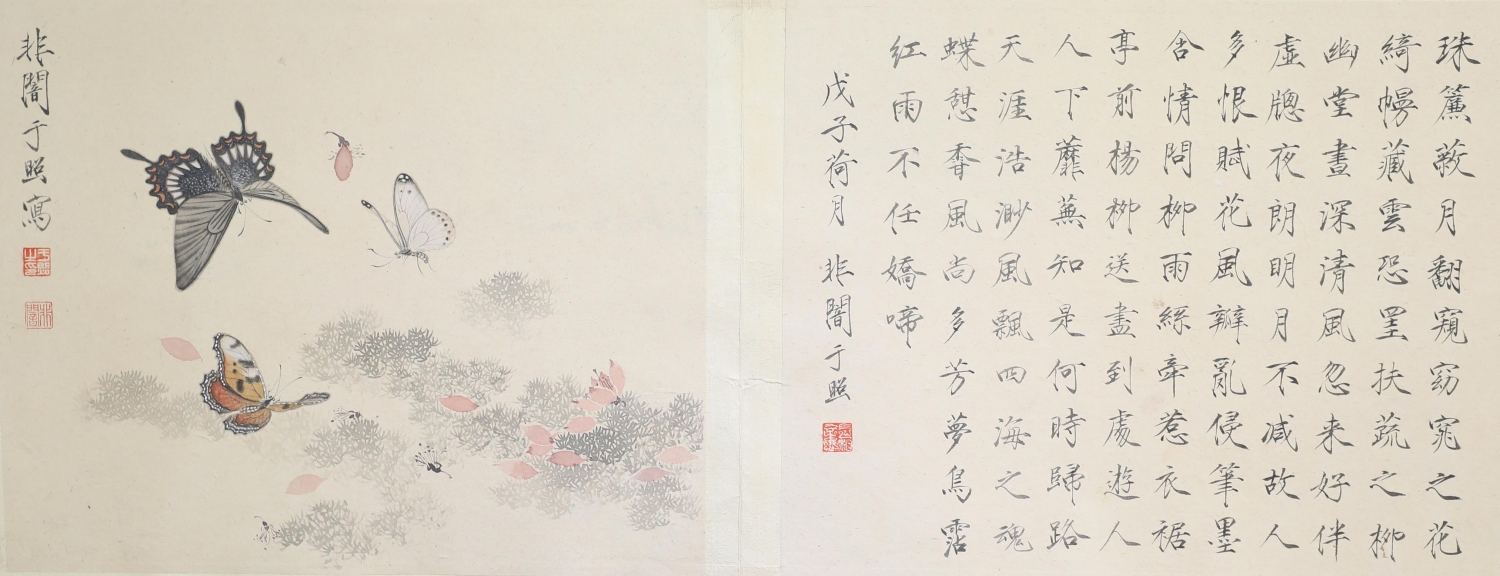 珠簾蔽月翻窺窈窕之花
綺幔藏雲恐罣扶蔬之柳
幽堂晝深清風忽来好伴
虛牕夜朗明月不减故人
多恨賦花風瓣亂侵筆墨
含情問柳雨絲牽惹衣裾
亭前楊柳送盡到處遊人
人下蘼蕪知是何時歸路
天涯浩渺風飄四海之魂
蝶憩香風尚多芳夢鳥霑
紅雨不任嬌啼
戊子荷月 非闇于照
非闇于照寫